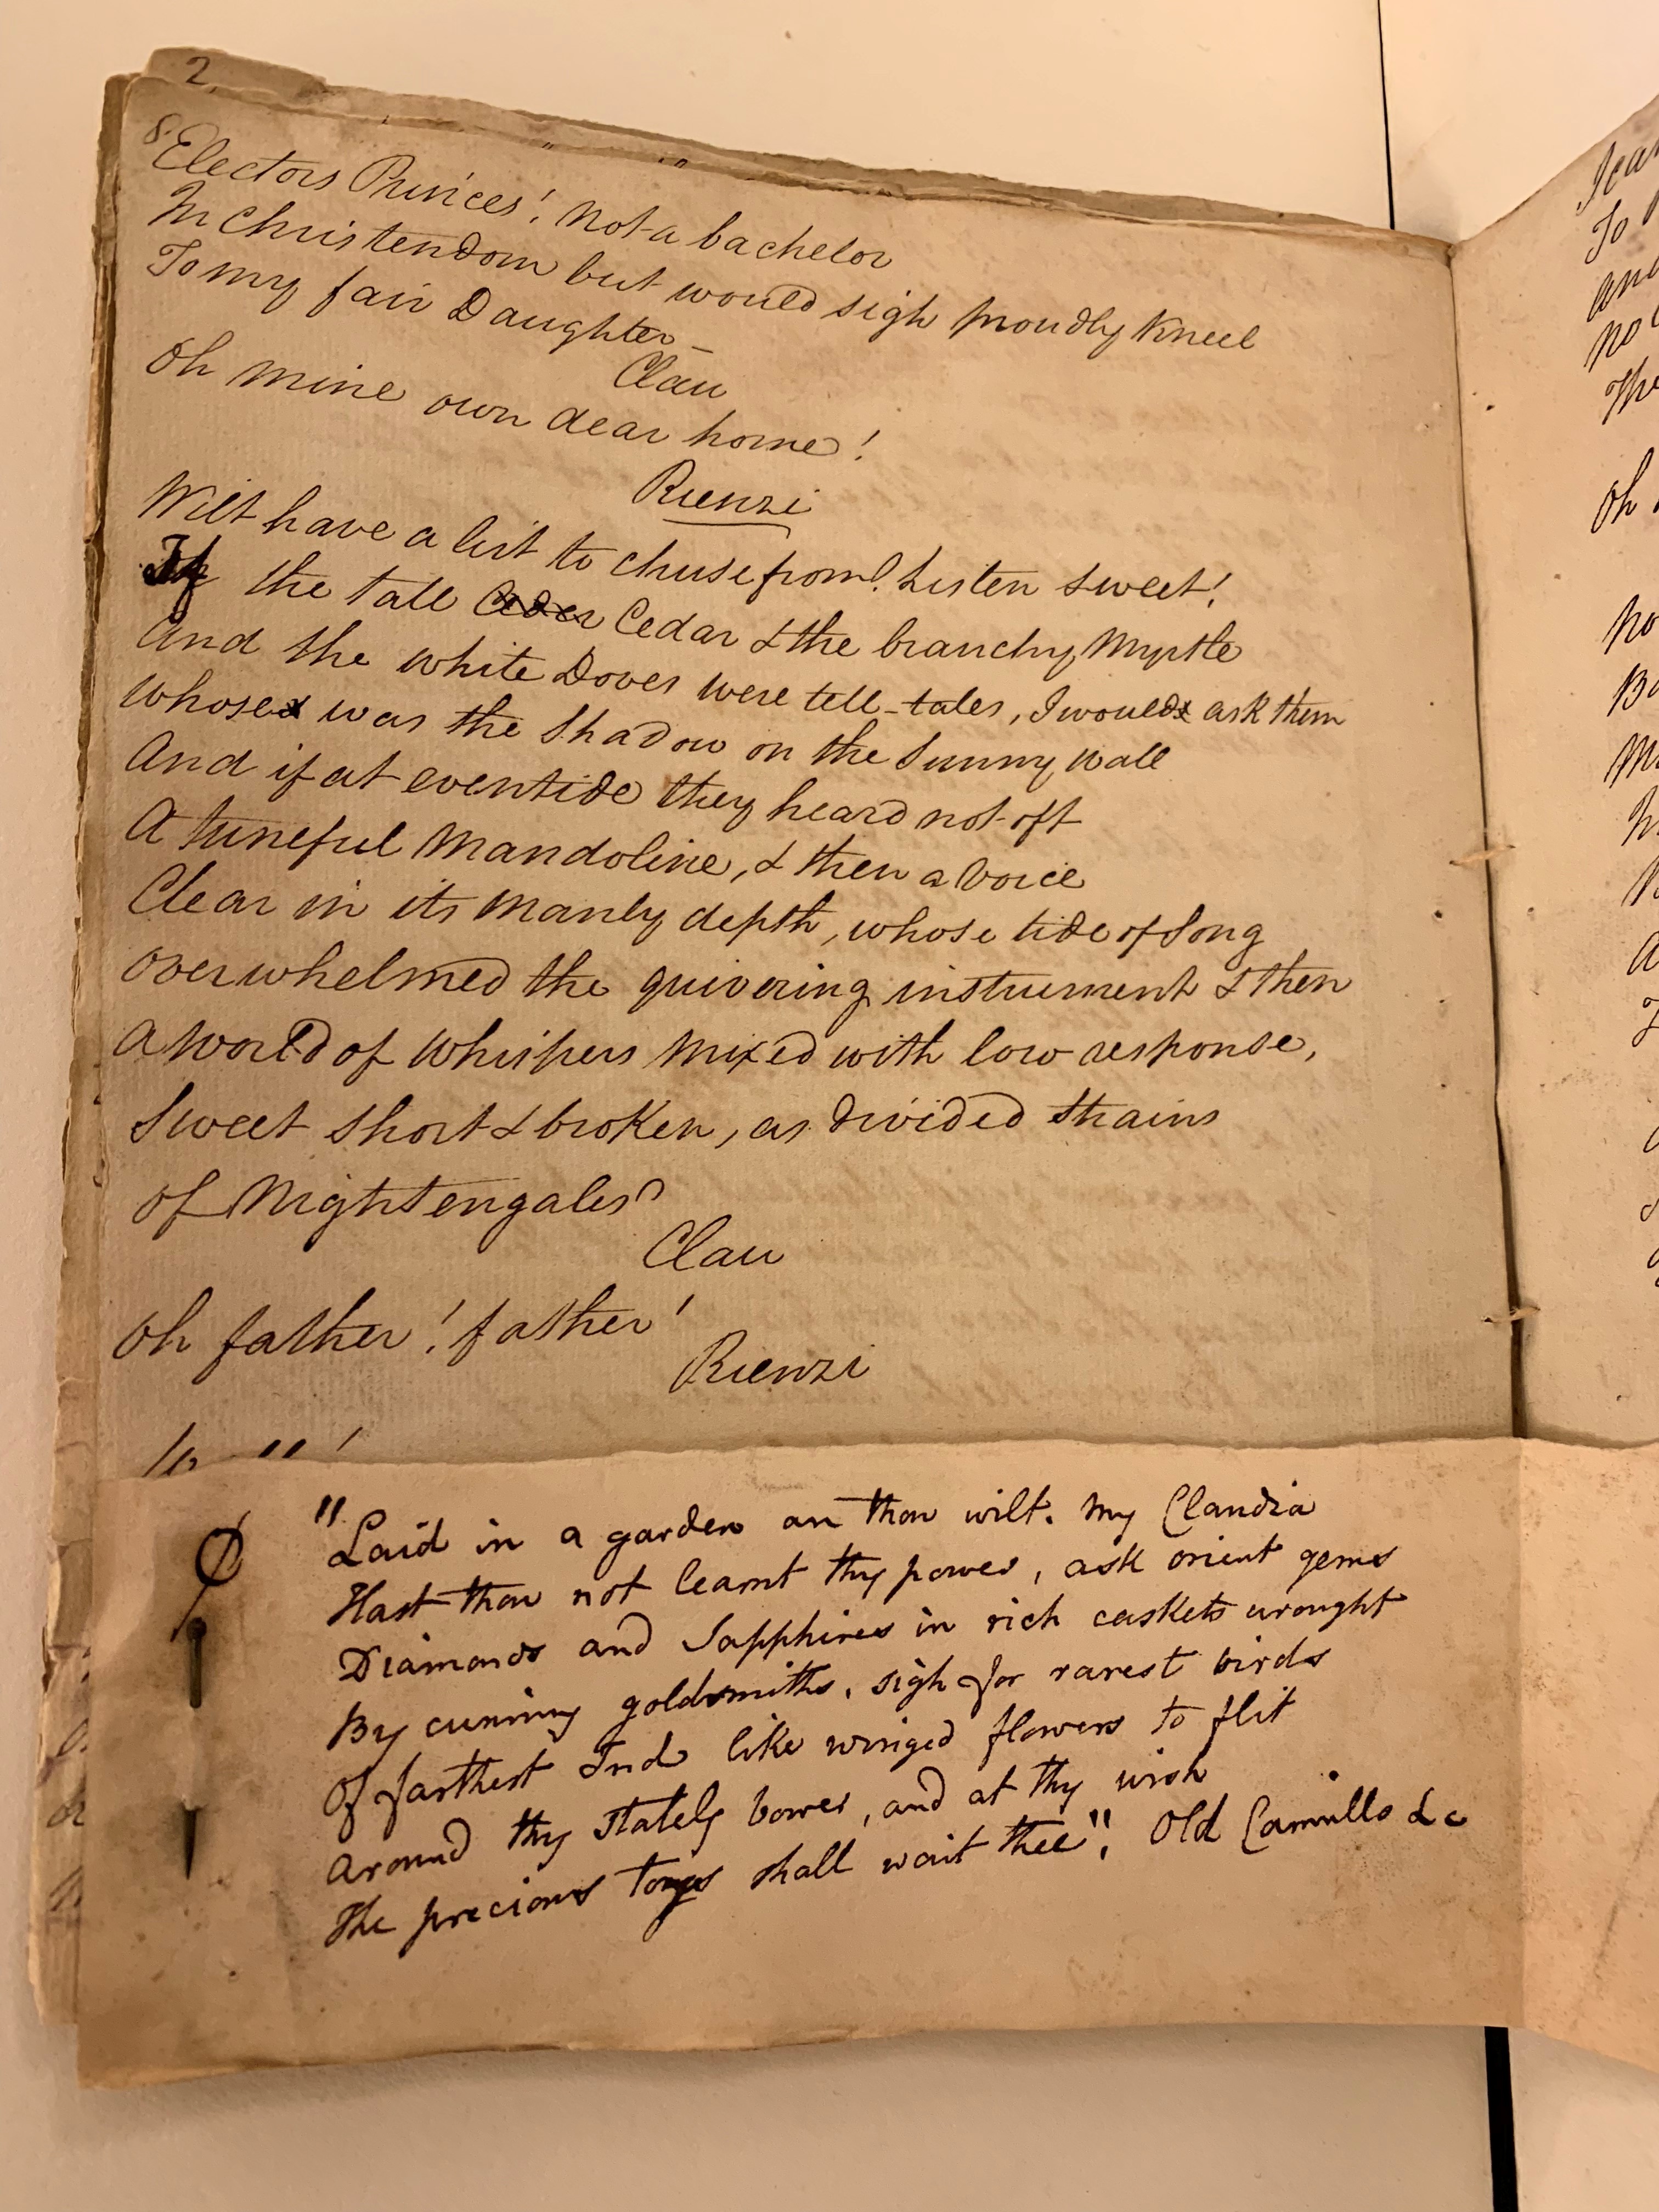 2
8.
Electors Princes! not a bachelor
In Christendom but would sigh proudly kneel
To my fair Daughter –
Clau
Oh mine own dear home!
Rienzi
Wilt have a list to chuse from? Listen sweet!
If the tall Ceder Cedar & the branchy Myrtle
And the white Doves were tell-tales, I would ask them
Whose was the Shadow on the Sunny Wall
And if at eventide they heard not oft
A tuneful Mandoline, & then a Voice
Clear in its Manly depth, whose tide of Song
Overwhelmed the quivering instrument & then
A World of Whispers Mixed with low response,
Sweet Short & broken, as divided Strains
Of Nightengales?
Clau
Oh father! father!
Rienzi
"Laid in a garden an thou wilt. My Claudia
Hast thou not learnt thy power, ask orient gems
Diamonds and Sapphires in rich caskets wrought
By cunning goldsmiths, sigh for rarest birds
Of farthest Ind like winged flowers to flit
Around thy Stately bower, and at thy wish
The precious toys shall wait thee", Old Camillo &c
Ican
To
And
No
The
Oh
No
Bu
A